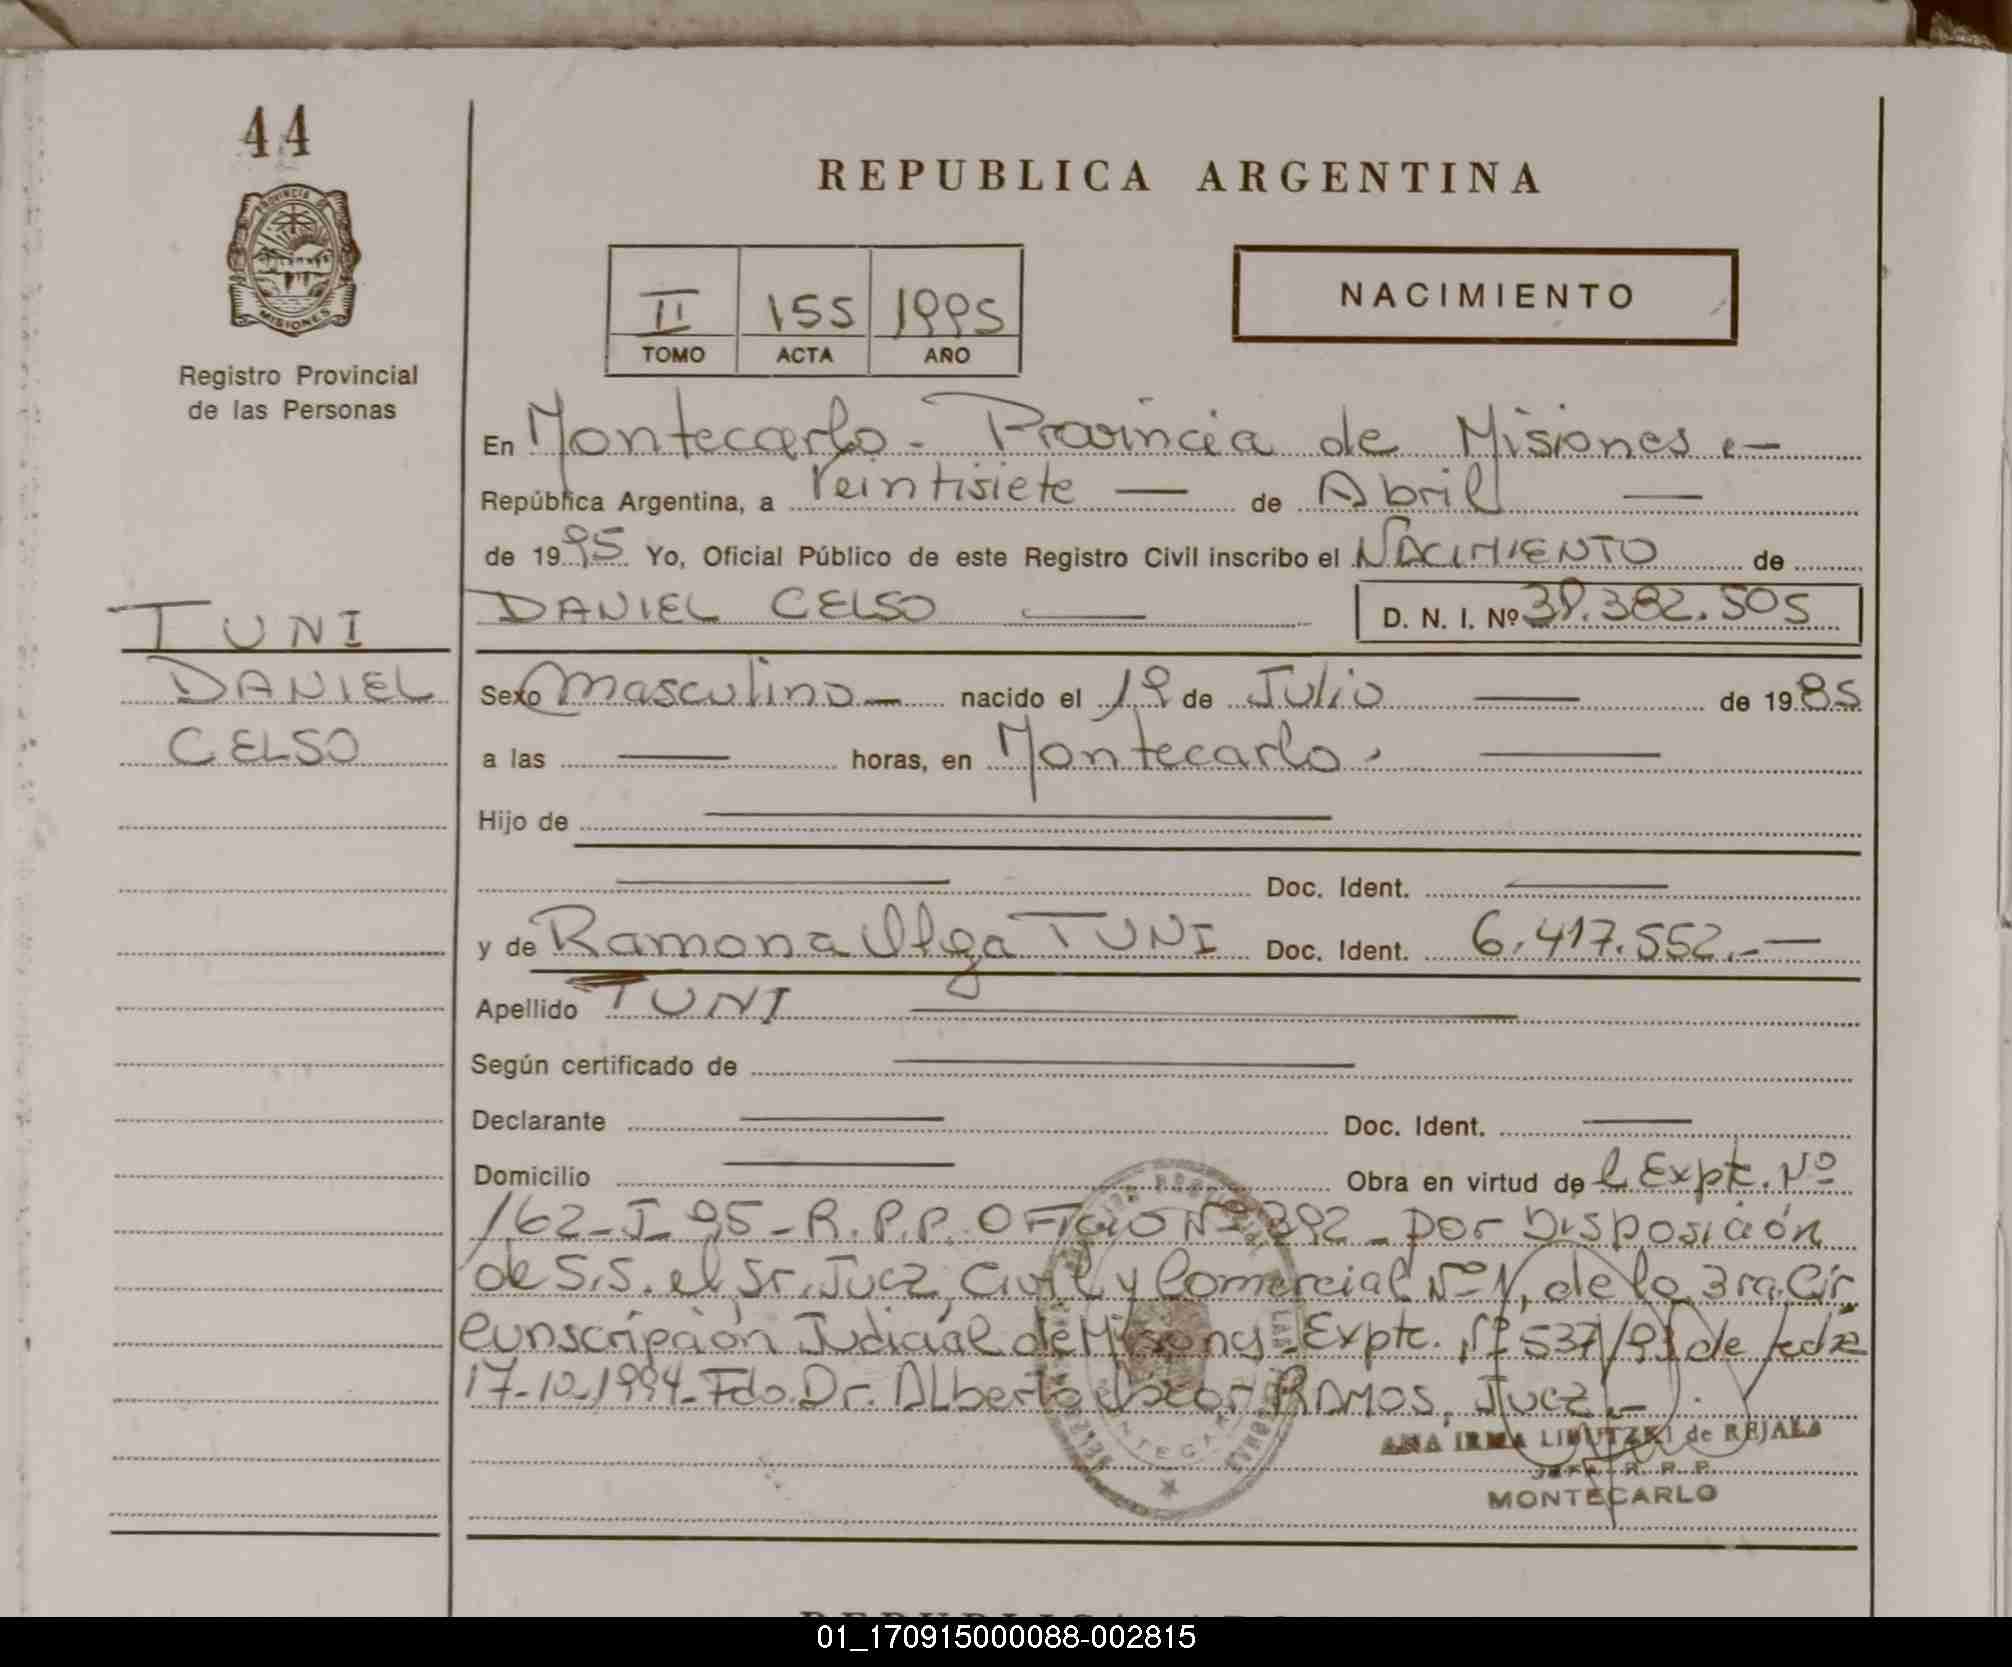 44
REPUBLICA ARGENTINA
PROVINCIA DE
MISIONES
Registro Provincial
de las Personas
II 155 1995
TOMO ACTA AÑO
NACIMIENTO
En Montecarlo - Provincia de Misiones
República Argentina, a Veintisiete — de Abril —
de 1995 Yo, Oficial Público de este Registro Civil inscribo el NACIMIENTO de
DANIEL CELSO — D. N. I. Nº 382.505
TUNI
DANIEL
CELSO
Sexo Masculino — nacido el 19 de Julio — de 1985
a las — horas, en Montecarlo. —
Hijo de —
— Doc. Ident. —
y de Ramona Olga TUNI Doc. Ident. 6.417.552.-—
Apellido TUNI —
Según certificado de —
Declarante — Doc. Ident. —
Domicilio — Obra en virtud de l Expte. Nº
162-I-95-R.P.P. OFICIO Nº 392 - por Disposición
de S.S. el Sr. Juez, Civil y Comercial Nº 1, de la 3ra. Cir
cunscripción Judicial de Misiones - Expte. Nº 537/93 de fecha
17-10-1994- Fdo. Dr. Alberto Oscar RAMOS, Juez.-
ANA IRMA LIBUTZKI de REJALA
JEFE R. P. P.
MONTECARLO
01_170915000088-002815